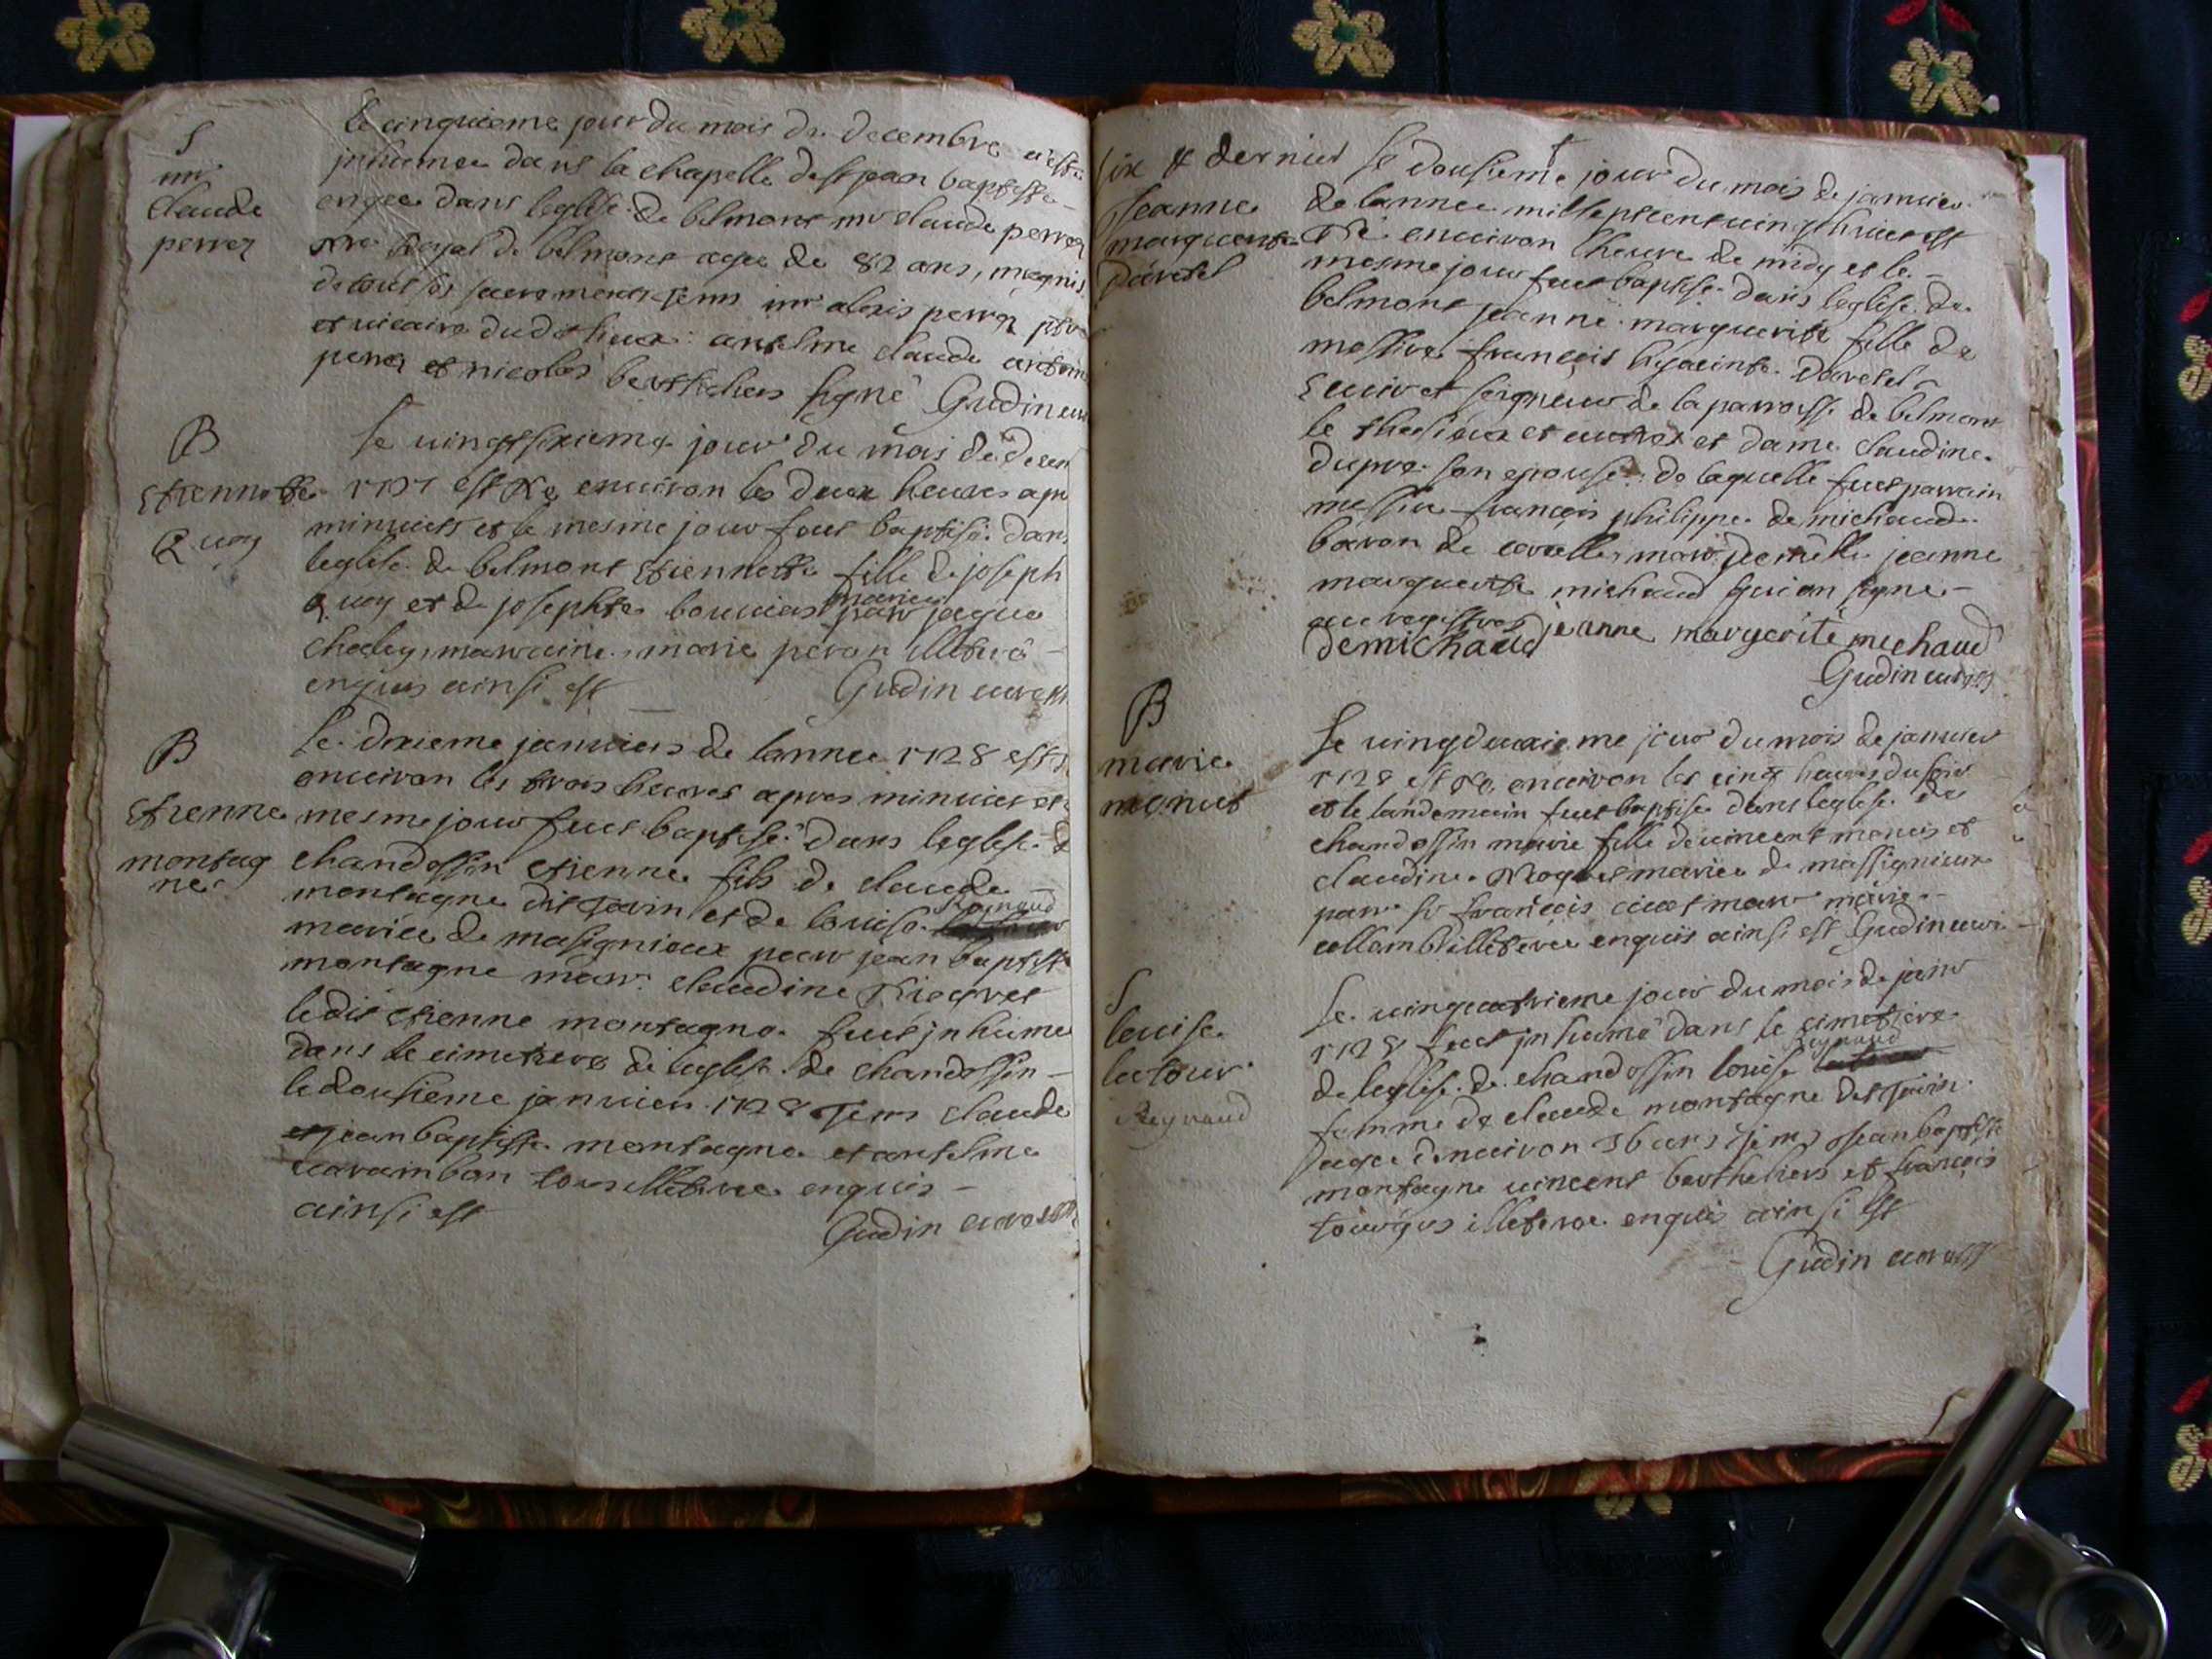 S
mr
Claude
perrez
le cinquieme jour du mois de decembre a esté
inhumee dans la chapelle de st jean baptiste
erigee dans leglise de belmont mr claude perrez
nre Royal de belmont agee de 82 ans, munis
de tout ses sacremens tems mr alexis perrez ptre
et vicaire dud lieux anselme claude antoine
perrez et nicolas berthelier signé Gudin curé
B
Etiennette
Quoy
le vingtsixieme jour du mois de decem
1727 est Né environ les deux heures apr
minuict et le mesme jour fuct baptisé dans
leglise de belmont Etiennette fille de joseph
Quoy et de josephte bouvier mariez parr jaque
chaley, marraine marie peron illeteré
enquis ainsi est Gudin curé
B
Etienne
montag
ne
le dixieme janvier de lannee 1728 est
environ les trois heures apres minuict et
mesme jour fuct baptisé dans leglise de
chandossin etienne fils de claude
montagne dit Javin et de louise Reynaud
mariee de masignieux parr jean baptiste
montagne marr claudine Nioqret
ledit etienne montagne fuct inhume
dans le cimetiere de leglise de chandossin
le dousieme janvier 1728 Tems claude
et jean baptiste montagne et antelme
carambon tous illeteree enquis
ainsi est Gudin curé
six & dernier
Jeanne
marguerite
Daresel
le dousieme jour du mois de janvier
de lannee mil sept cent vingt huict est
Né environ lheure de midy et le
mesme jour fuct baptisé dans leglise de
belmont jeanne marguerite fille de
messire françois hyacinte Daresel
Ecuier et seigneur de la parroisse de belmont
le thusieux et autres et dame claudine
dupra son epouse de laquelle fuct parrain
messire françois philippe de michaud
baron de corcelle, marr demelle jeanne
marguerite michaud qui on signe
au registres
Demichaud jeanne margerite michaud
Gudin curé
B
marie
monet
le vingdeuxieme jour du mois de janvier
1728 est Né environ les cinq heures du soir
et le landemain fuct baptisé dans leglise de
chandossin marie fille de vincent monet et
claudine Nioqret mariee de massignieux
parr sr françois marr marie
collomb illeteree enquis ainsi est Gudin curé
S
louise
latour
Reynaud
le vingquatrieme jour du mois de janr
1728 fuct inhumé dans le cimetiere
de leglise de chandossin louise Reynaud
femme de claude montagne dit Javin
agee denviron 36 ans tems jean baptiste
montagne vincent berthelier et françois
illeteree enquis ainsi est
Gudin curé